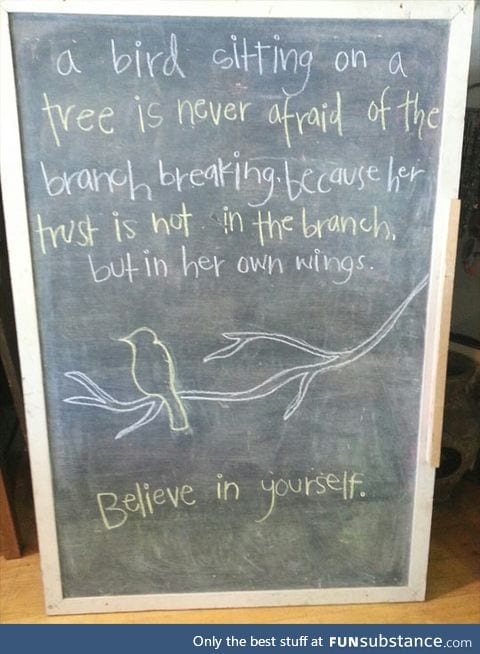 a bird sitting on a
tree is never afraid of the
branch breaking. because her
trust is not in the branch.
but in her own wings.
Believe in yourself.
Only the best stuff at FUNsubstance.com